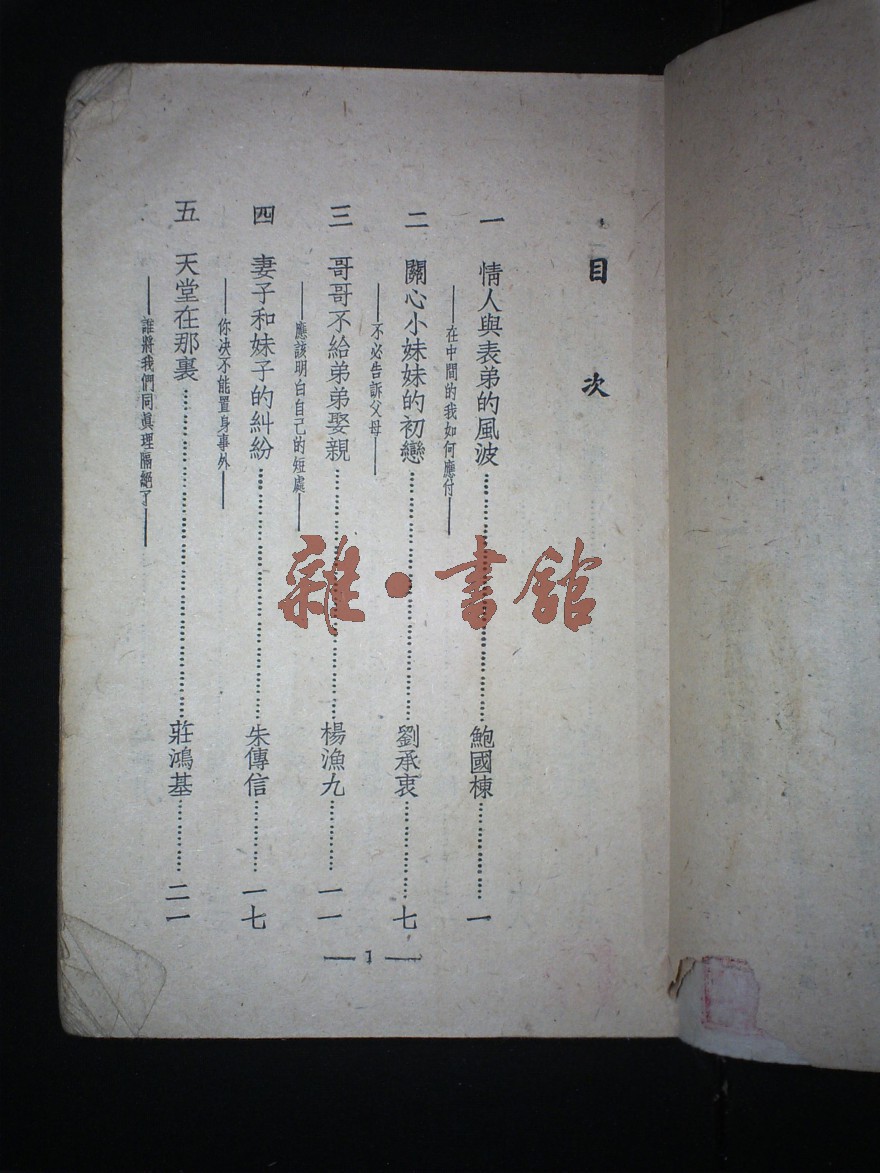 目次
一 情人與表弟的風波……鮑國棟……一
——在中間的我如何應付——
二 關心小妹妹的初戀……劉承衷……七
——不必告訴父母——
三 哥哥不給弟弟娶親……楊漁九……一一
——應該明白自己的短處——
四 妻子和妹子的糾紛……朱傳信……一七
——你決不能置身事外——
五 天堂在那裏……莊鴻基……二一
——誰將我們同眞理隔絕了——
— 1 —
雜·書館